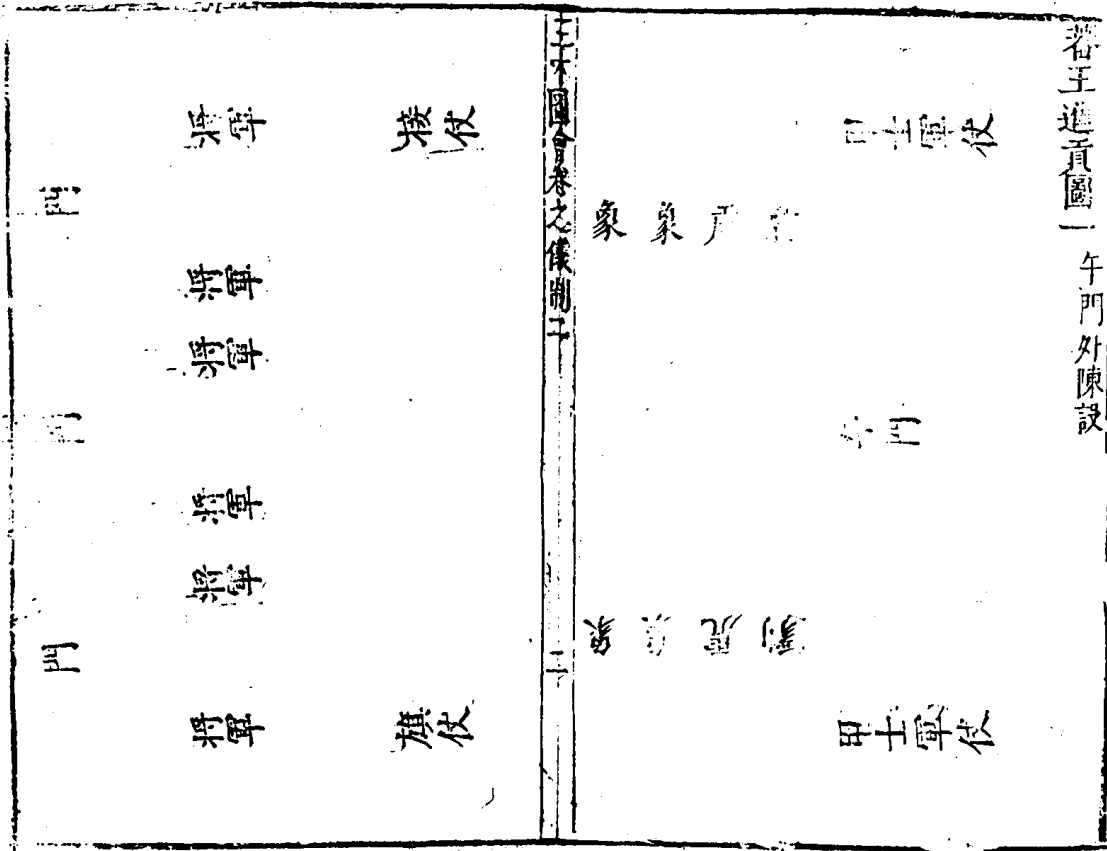 蕃王進貢圖一 午門外陳設
甲士軍仗
午門
甲士軍仗
象 象 虎
象 象 虎 豹
三才圖會卷之儀制二
二
旗仗
旗仗
將軍
將軍
將軍
將軍
將軍
將軍
門
門
門